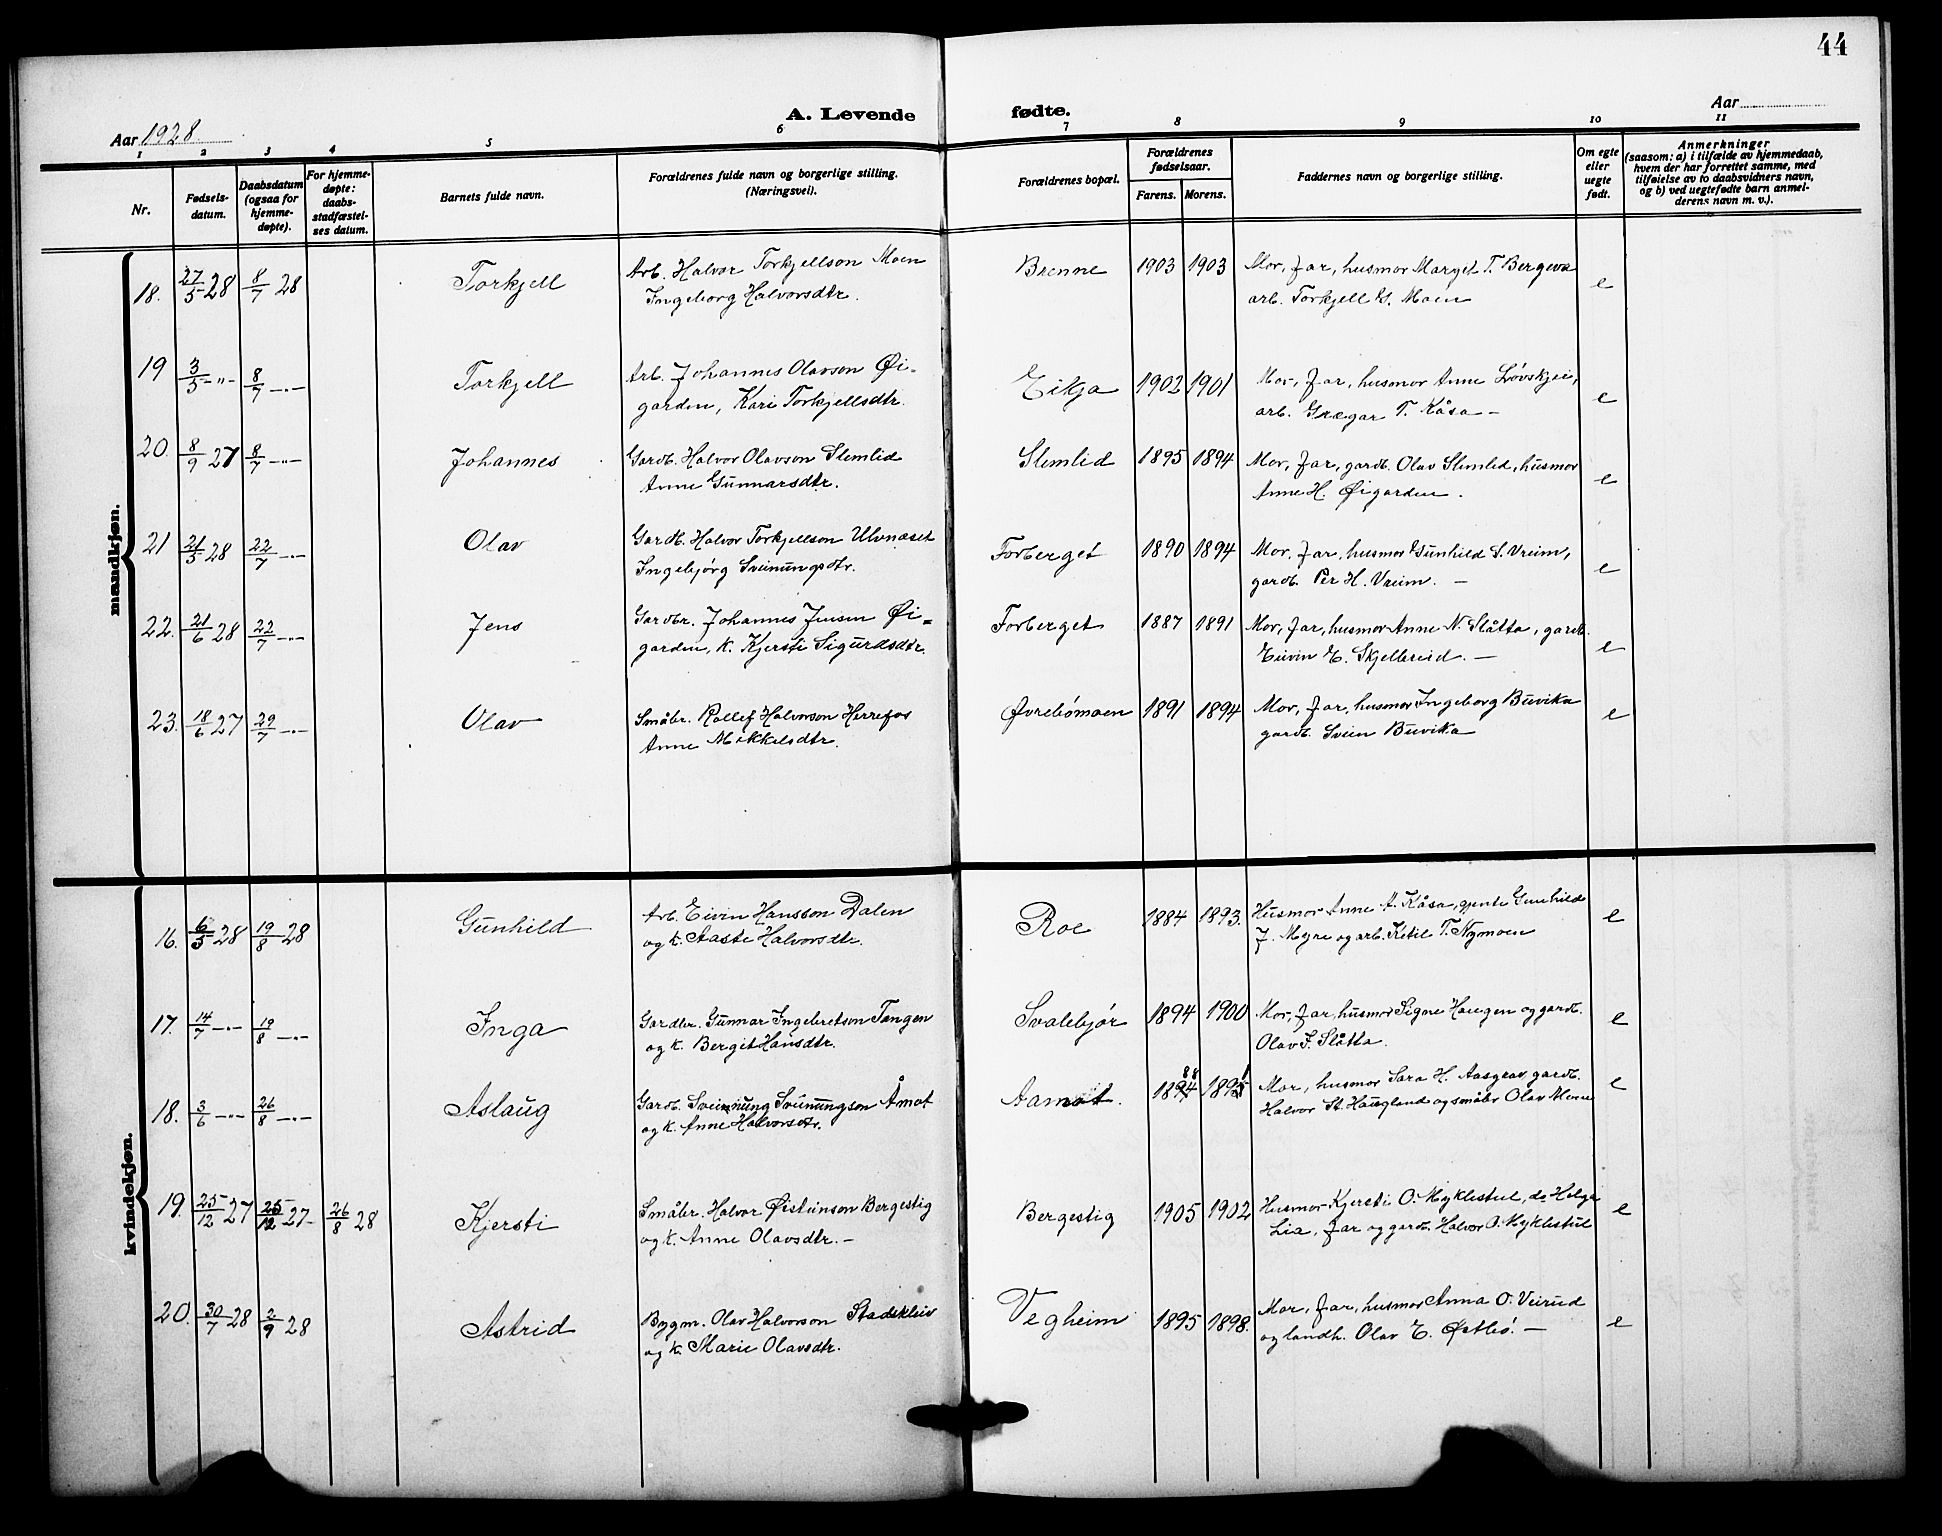 44
Aar 1928
A. Levende fødte.
Aar
1 2 3 4 5 6 7 8 9 10 11
Nr.
Fødsels-
datum.
Daabsdatum
(ogsaa for
hjemme-
døpte).
For hjemme-
døpte:
daabs-
stadfæstel-
ses datum.
Barnets fulde navn.
Forældrenes fulde navn og borgerlige stilling.
(Næringsvei).
Forældrenes bopæl.
Forældrenes
fødselsaar.
Farens. Morens.
Faddernes navn og borgerlige stilling.
Om egte
eller
uegte
født.
Anmerkninger
(saasom: a) i tilfælde av hjemmedaab,
hvem der har forrettet samme, med
tilføielse av to daabsvidners navn,
og b) ved uegtefødte barn anmel-
derens navn m. v.).
mandkjøn.
18. 27/5 28 8/7 28 Torkjell Arb. Halvor Torkjellson Moen Brenne 1903 1903 Mor, far, husmor Margit T. Bergeva e
Ingeborg Halvorsdtr. arb. Torkjell G. Moen
19 3/5 -"- 8/7 -"- Torkjell Arb. Johannes Olavson Øi- Eikja 1902 1901 Mor, far, husmor Anne Lövskjei, e
garden, Kari Torkjellsdtr. arb. Grægar T. Kåsa -
20. 8/9 27 8/7 -"- Johannes Gardb. Halvor Olavson Slemlid Slemlid 1895 1894 Mor, far, gardb. Olav Slemlid, husmor e
Anne Gunnarsdtr. Anne H. Øigarden.
21 21/5 28 22/7 -"- Olav Gardb. Halvor Torkjellson Ulvnæset Forberget 1890 1894 Mor, far, husmor Gunhild S. Vreim, e
Ingebjørg Sveinungsdtr. gardb. Per H. Vreim. -
22. 21/6 28 22/7 -"- Jens Gardbr. Johannes Jensen Øi= Forberget 1887 1891 Mor, far, husmor Anne N. Slåtta, gardb. e
garden, k. Kjersti Sigurdsdtr. Eivin E. Skjelbreid. -
23. 18/6 27 29/7 -"- Olav Småbr. Rollef Halvorson Herrefos Øvrebömoen 1891 1894 Mor, far, husmor Ingeborg Buvika e
Anne Mikkelsdtr. gardb. Svein Buvika
kvindekjøn.
16. 6/5 28 19/8 28 Gunhild Arb. Eivin Hansson Dalen Roe 1884 1893. Husmor Anne A. Kåsa, gjente Gunhild e
og k. Aaste Halvorsdtr. J. Myre og arb. Ketil T. Nymoen
17. 14/7 -"- 19/8 -"- Inga Gardbr. Gunnar Ingebretson Tangen Svalebjör 1894 1900 Mor, far, husmor Signe Haugen og gardb. e
og k. Bergit Hansdtr. Olav J. Slåtta.
18. 3/6 -"- 26/8 -"- Aslaug Gardb. Sveinung Sveinungson Åmot Aamot. Mor, husmor Sara H. Aasgrav, gardb. e
og k. Anne Halvorsdtr. Halvor St. Haugland og småbr Olav Moen
19. 25/12 27 26/12 27- 26/8 28 Kjersti Småbr. Halvor Øisteinson Bergestig Bergestig 1905 1902 Husmor Kjersti O. Myklestul, do Helga e
og k. Anne Olavsdtr. - Lia, far og gardb. Halvor O. Myklestul
20. 30/7 28 2/9 28 Astrid Bygm. Olav Halvorson Stadskleiv Vegheim 1895 1898. Mor, far, husmor Anna O. Veirud e
og k. Marie Olavsdtr. og landh. Olav E. Østbö. -